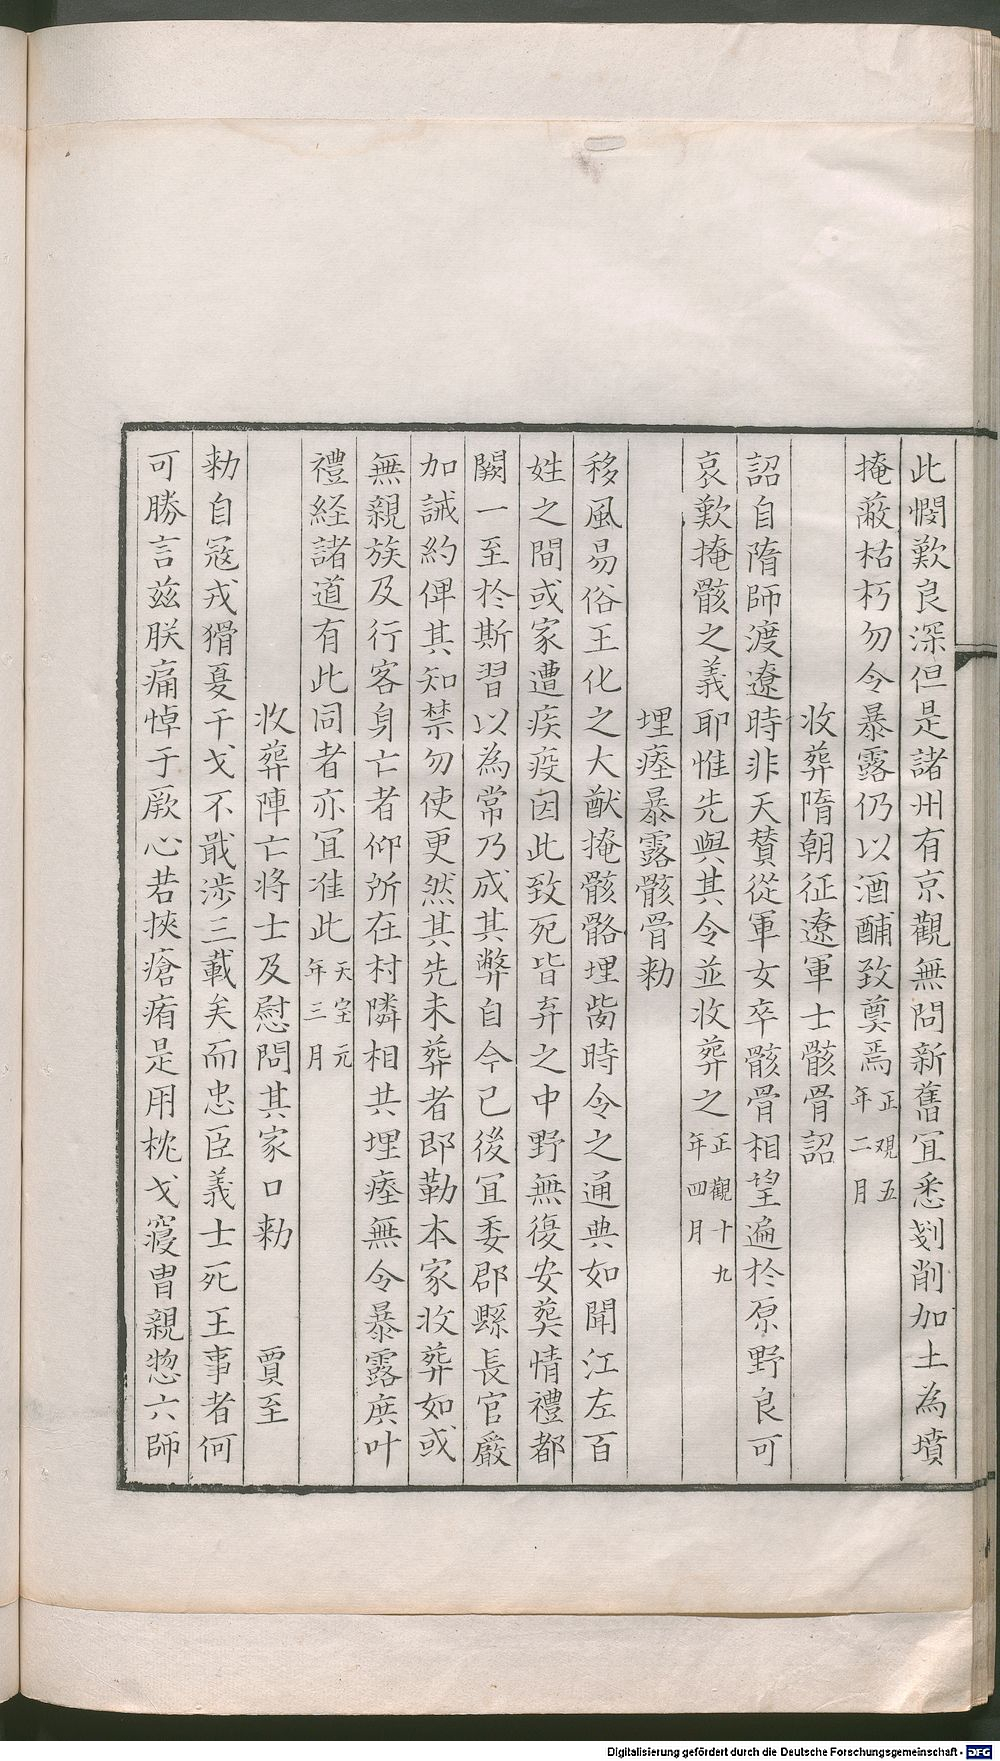 此憫歎良深但是諸州有京觀無問新舊冝悉剗削加土為墳
掩蔽枯朽勿令暴露仍以酒酺致奠焉正观五年二月
收葬隋朝征遼軍士骸骨詔
詔自隋師渡遼時非天賛從軍女卒骸骨相望遍於原野良可
哀歎掩骸之義耶惟先與其令並收葬之正觀十九年四月
埋瘞暴露骸骨勑
移風易俗王化之大猷掩骸骼埋胔時令之通典如聞江左百
姓之間或家遭疾疫因此致死皆弃之中野無復安葬情禮都
闕一至於斯習以為常乃成其弊自今已後冝委郡縣長官嚴
加誡約俾其知禁勿使更然其先未葬者即勒本家收葬如或
無親族及行客身亡者仰所在村隣相共埋瘞無令暴露庻叶
禮経諸道有此同者亦冝准此天宝元年三月
收葬陣亡将士及慰問其家口勑 賈至
勑自冦戎猾夏干戈不戢涉三載矣而忠臣義士死王事者何
可勝言兹朕痛悼于厥心若挾瘡痏是用枕戈寢胄親惣六師
Digitalisierung gefördert durch die Deutsche Forschungsgemeinschaft - DFG